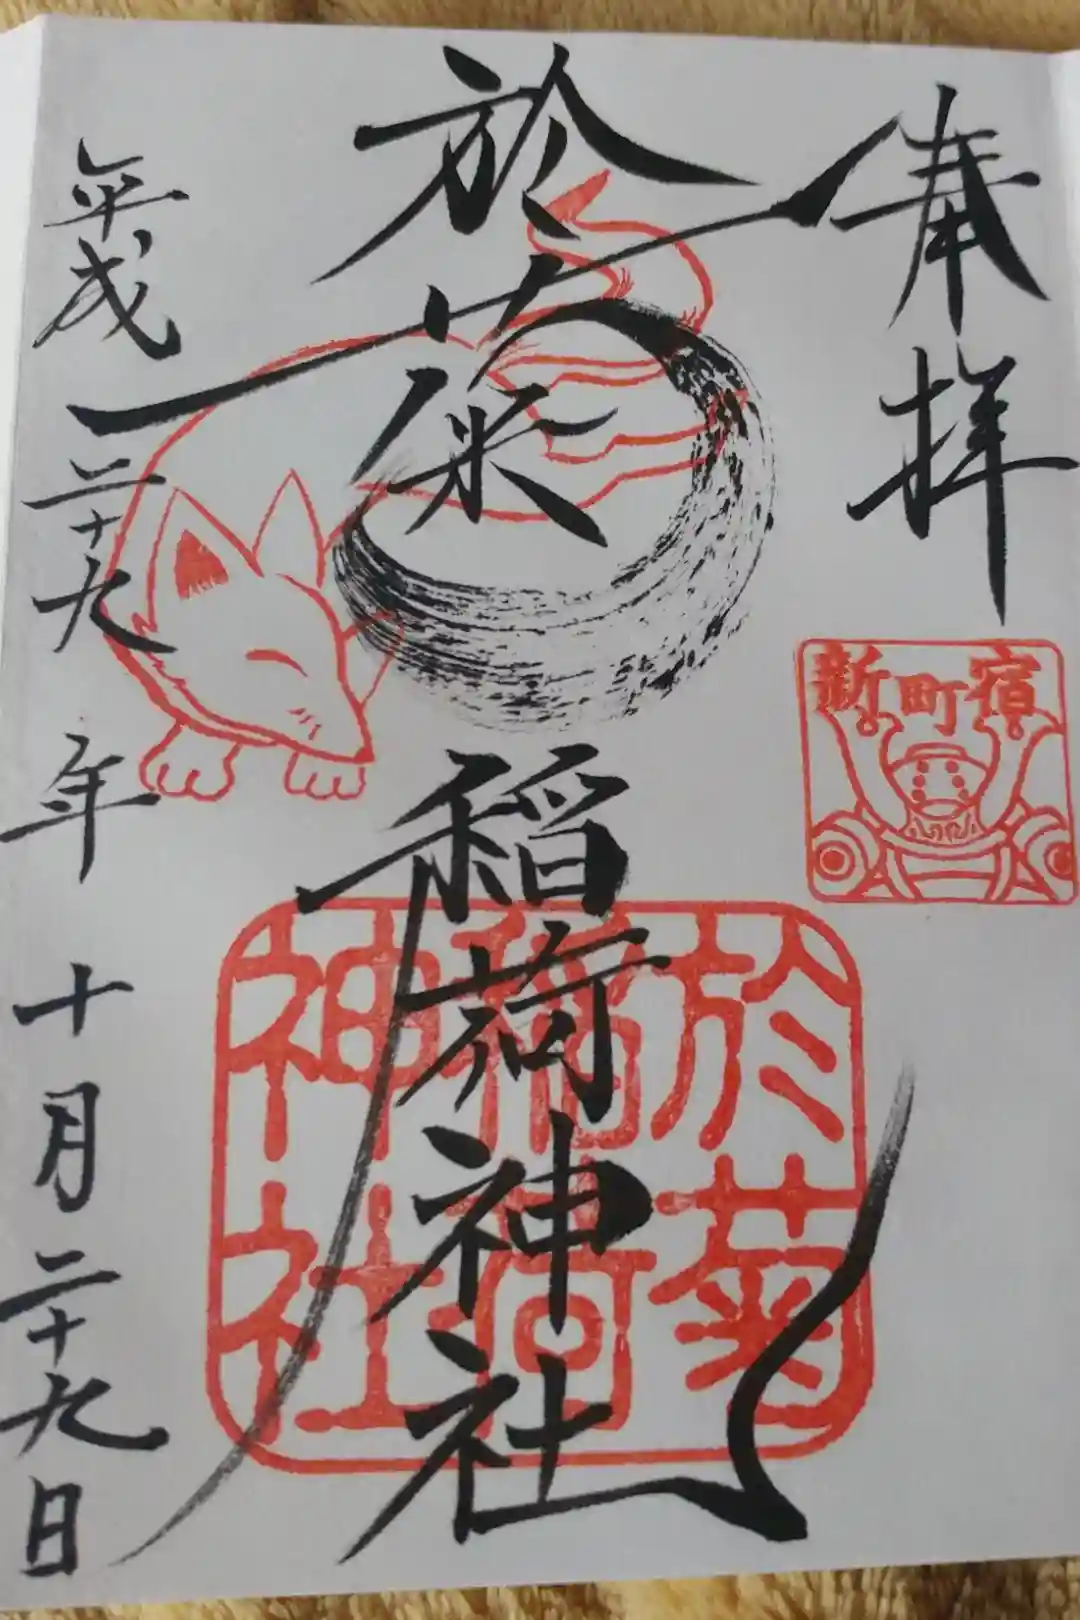 奉拝
新町宿
於菊稲荷神社
於菊
稲荷
神社
平成二十九年十月二十九日